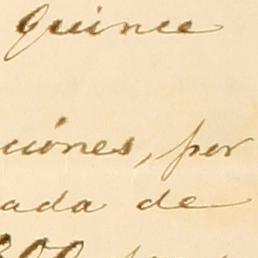 Quince
ciónes, por
ada de
300